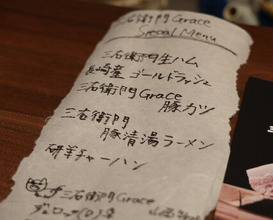 三右衛門Grace
Special Menu
三右衛門生ハム
長崎産 ゴールドラッシュ
三右衛門Grace
豚カツ
三右衛門
豚清湯ラーメン
チャーハン
三右衛門Grace